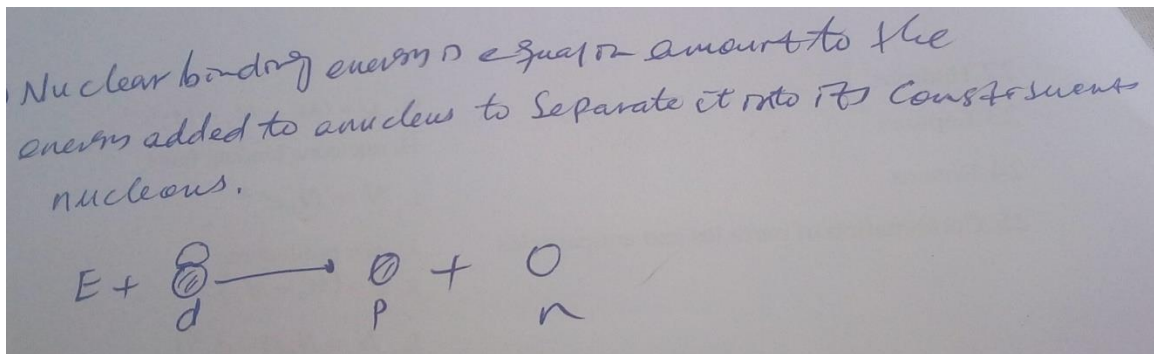 Nuclear binding energy is equal in amount to the
energy added to a nucleus to Separate it into its Constituent
nucleons.
E + → + 
d p n